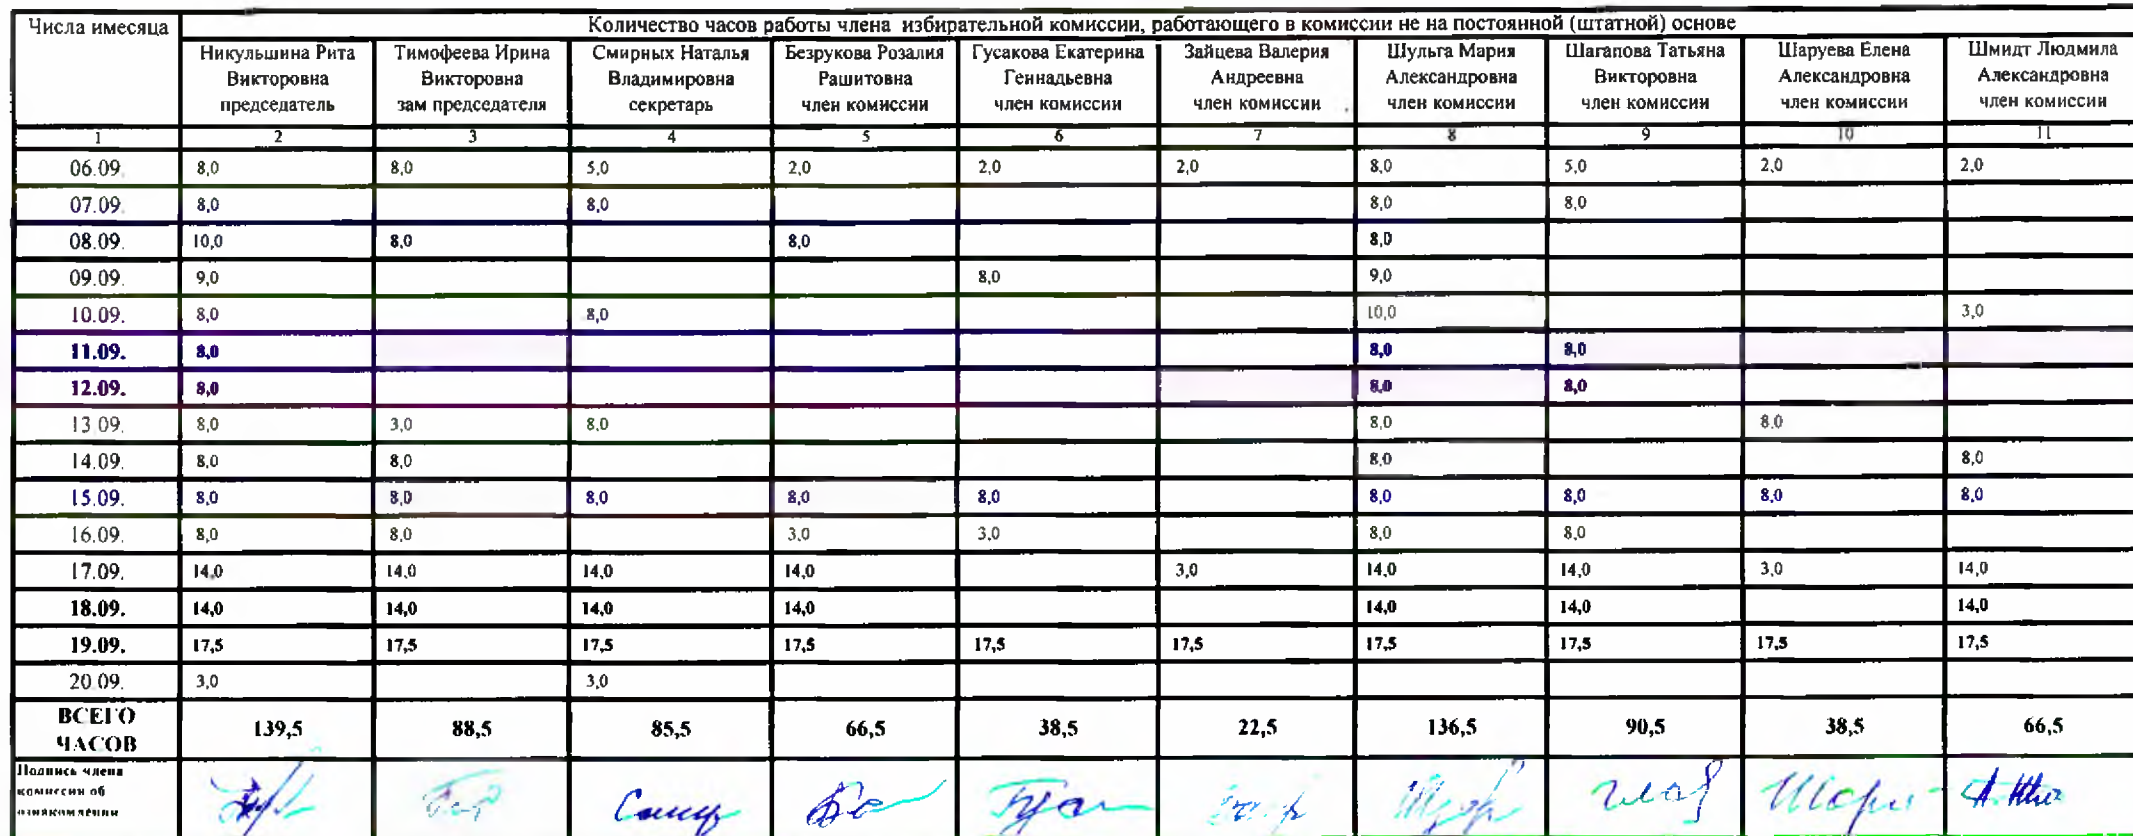 Числа имесяца
Количество часов работы члена избирательной комиссии, работающего в комиссии не на постоянной (штатной) основе
Никульшина Рита Викторовна председатель
Тимофеева Ирина Викторовна зам председателя
Смирных Наталья Владимировна секретарь
Безрукова Розалия Рашитовна член комиссии
Гусакова Екатерина Геннадьевна член комиссии
Зайцева Валерия Андреевна член комиссии
Шульга Мария Александровна член комиссии
Шагапова Татьяна Викторовна член комиссии
Шаруева Елена Александровна член комиссии
Шмидт Людмила Александровна член комиссии
1 2 3 4 5 6 7 8 9 10 11
06.09. 8,0 8,0 5,0 2,0 2,0 2,0 8,0 5,0 2,0 2,0
07.09. 8,0 8,0 8,0 8,0
08.09. 10,0 8,0 8,0 8,0
09.09. 9,0 8,0 9,0
10.09. 8,0 8,0 10,0 3,0
11.09. 8,0 8,0 8,0
12.09. 8,0 8,0 8,0
13.09. 8,0 3,0 8,0 8,0 8,0
14.09. 8,0 8,0 8,0 8,0
15.09. 8,0 8,0 8,0 8,0 8,0 8,0 8,0 8,0 8,0
16.09. 8,0 8,0 3,0 3,0 8,0 8,0
17.09. 14,0 14,0 14,0 14,0 3,0 14,0 14,0 3,0 14,0
18.09. 14,0 14,0 14,0 14,0 14,0 14,0 14,0
19.09. 17,5 17,5 17,5 17,5 17,5 17,5 17,5 17,5 17,5 17,5
20.09. 3,0 3,0
ВСЕГО ЧАСОВ 139,5 88,5 85,5 66,5 38,5 22,5 136,5 90,5 38,5 66,5
Подпись члена
комиссии об
ознакомлении